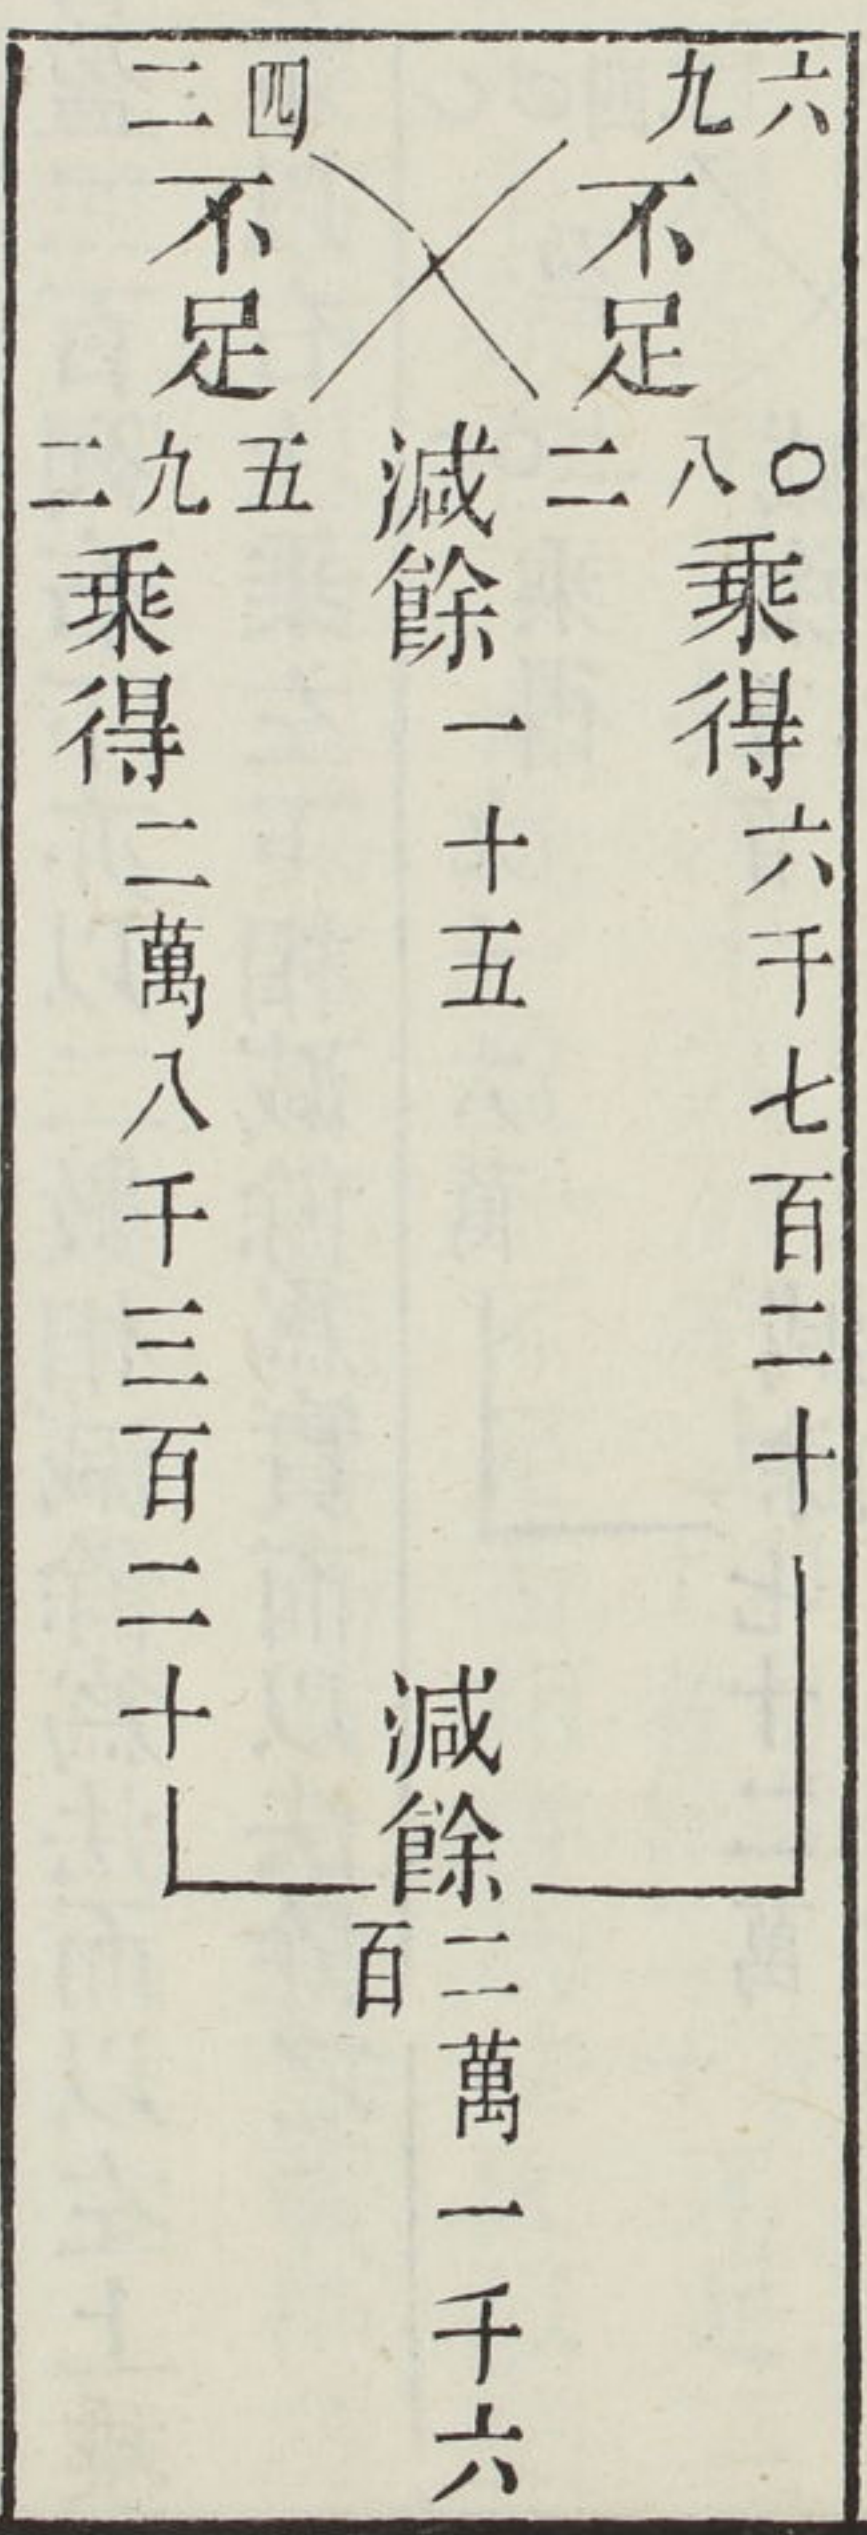 九六
不足
二八〇
乘得六千七百二十
減餘一十五
減餘二萬一千六
百
二四
不足
二九五
乘得二萬八千三百二十